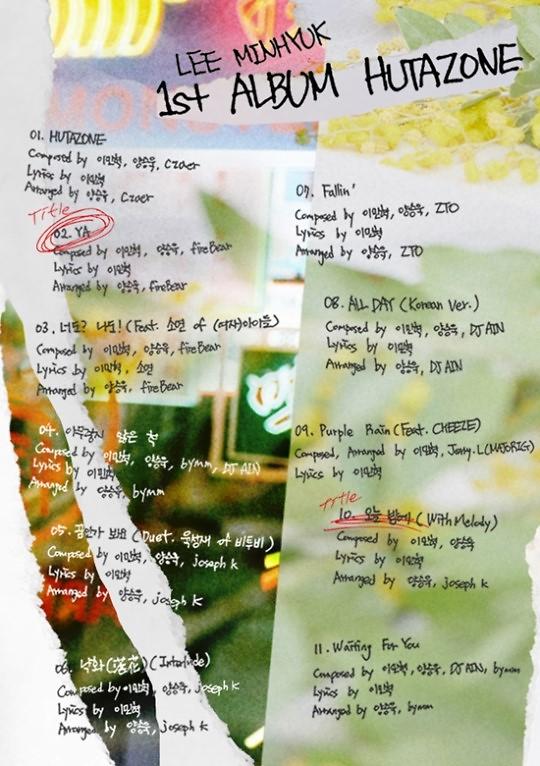 LEE MINHYUK
1st ALBUM HUTAZONE
01. HUTAZONE
Composed by 이민혁, 양승욱, czaer
Lyrics by 이민혁
Arranged by 양승욱, czaer
Title
02. YA
Composed by 이민혁, 양승욱, fireBear
Lyrics by 이민혁
Arranged by 양승욱, fireBear
03. 너도? 나도! (Feat. 소연 of (여자)아이들)
Composed by 이민혁, 양승욱, fireBear
Lyrics by 이민혁, 소연
Arranged by 양승욱, fireBear
04. 아무렇지 않은 척
Composed by 이민혁, 양승욱, bymm, DJ AIN
Lyrics by 이민혁
Arranged by 양승욱, bymm
05. 꿈인가 봐요 (Duet. 육성재 of 비투비)
Composed by 이민혁, 양승욱, joseph k
Lyrics by 이민혁
Arranged by 양승욱, joseph k
06. 낙화(落花) (Interlude)
Composed by 이민혁, 양승욱, joseph k
Lyrics by 이민혁
Arranged by 양승욱, joseph k
07. Fallin'
Composed by 이민혁, 양승욱, ZTO
Lyrics by 이민혁
Arranged by 양승욱, ZTO
08. ALL DAY (Korean Ver.)
Composed by 이민혁, 양승욱, DJ AIN
Lyrics by 이민혁
Arranged by 양승욱, DJ AIN
09. Purple Rain (Feat. CHEEZE)
Composed, Arranged by 이민혁, Jerry.L(MAJORIG)
Lyrics by 이민혁
Title
10. 오늘 밤에 (With Melody)
Composed by 이민혁, 양승욱
Lyrics by 이민혁
Arranged by 양승욱, joseph k
11. Waiting For You
Composed by 이민혁, 양승욱, DJ AIN, bymm
Lyrics by 이민혁
Arranged by 양승욱, bymm